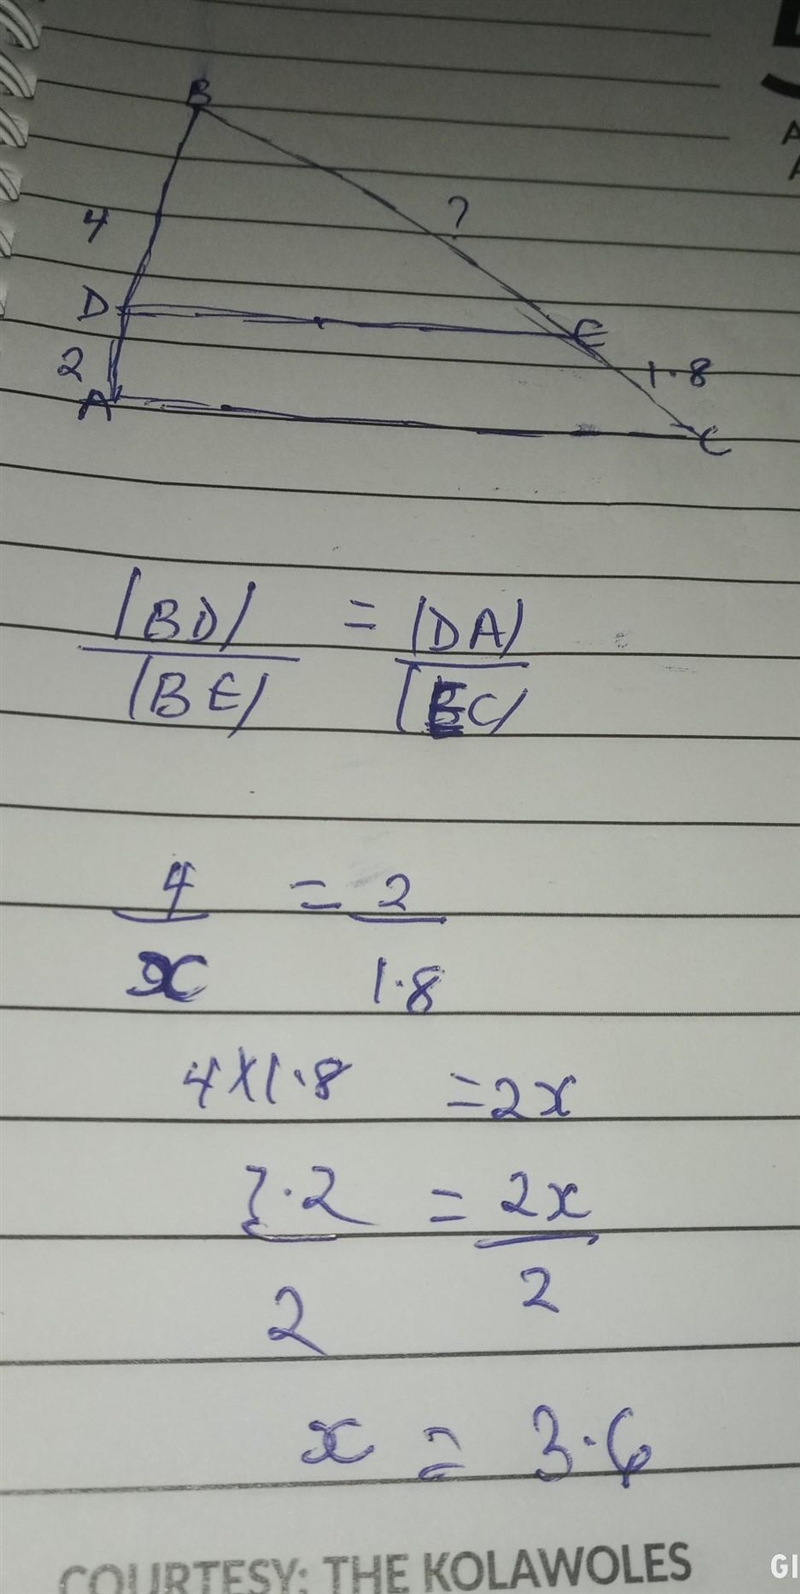 B
4
?
D
E
2
1.8
A
C
|BD| = |DA|
|BE| |EC|
4 = 2
x 1.8
4x1.8 = 2x
7.2 = 2x
2 2
x = 3.6
COURTESY: THE KOLAWOLES